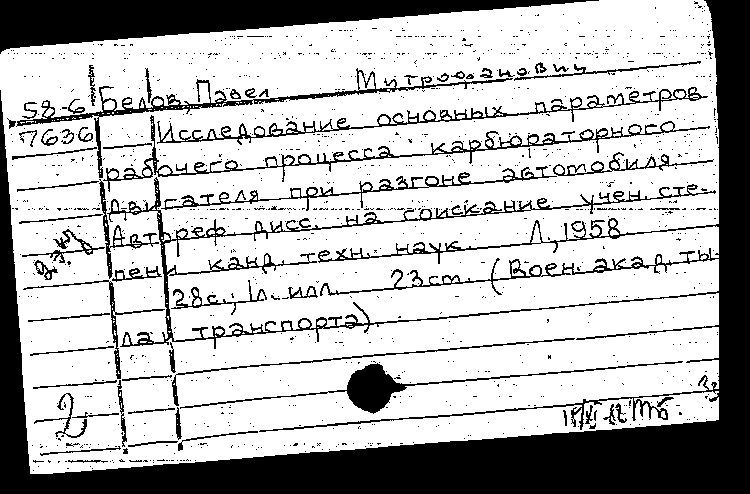 58-6 Белов, Павел Митрофанович
7636 Исследование основных параметров
рабочего процесса карбюраторного
двигателя при разгоне автомобиля.
Автореф. дисс. на соискание учен. сте-
пени канд. техн. наук. Л, 1958
28с.; 1л. илл. 23см. (Воен. акад. ты-
ла и транспорта).
2